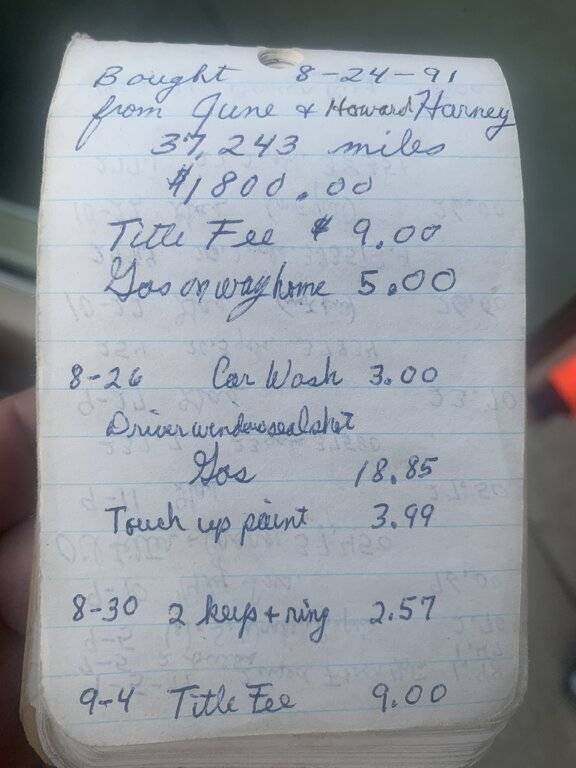 Bought 8-24-91
from June & Howard Harney
37,243 miles
$1800.00
Title Fee $ 9.00
Gas on way home 5.00
8-26 Car Wash 3.00
Driver window seal shot
Gas 18.85
Touch up paint 3.99
8-30 2 keys + ring 2.57
9-4 Title Fee 9.00